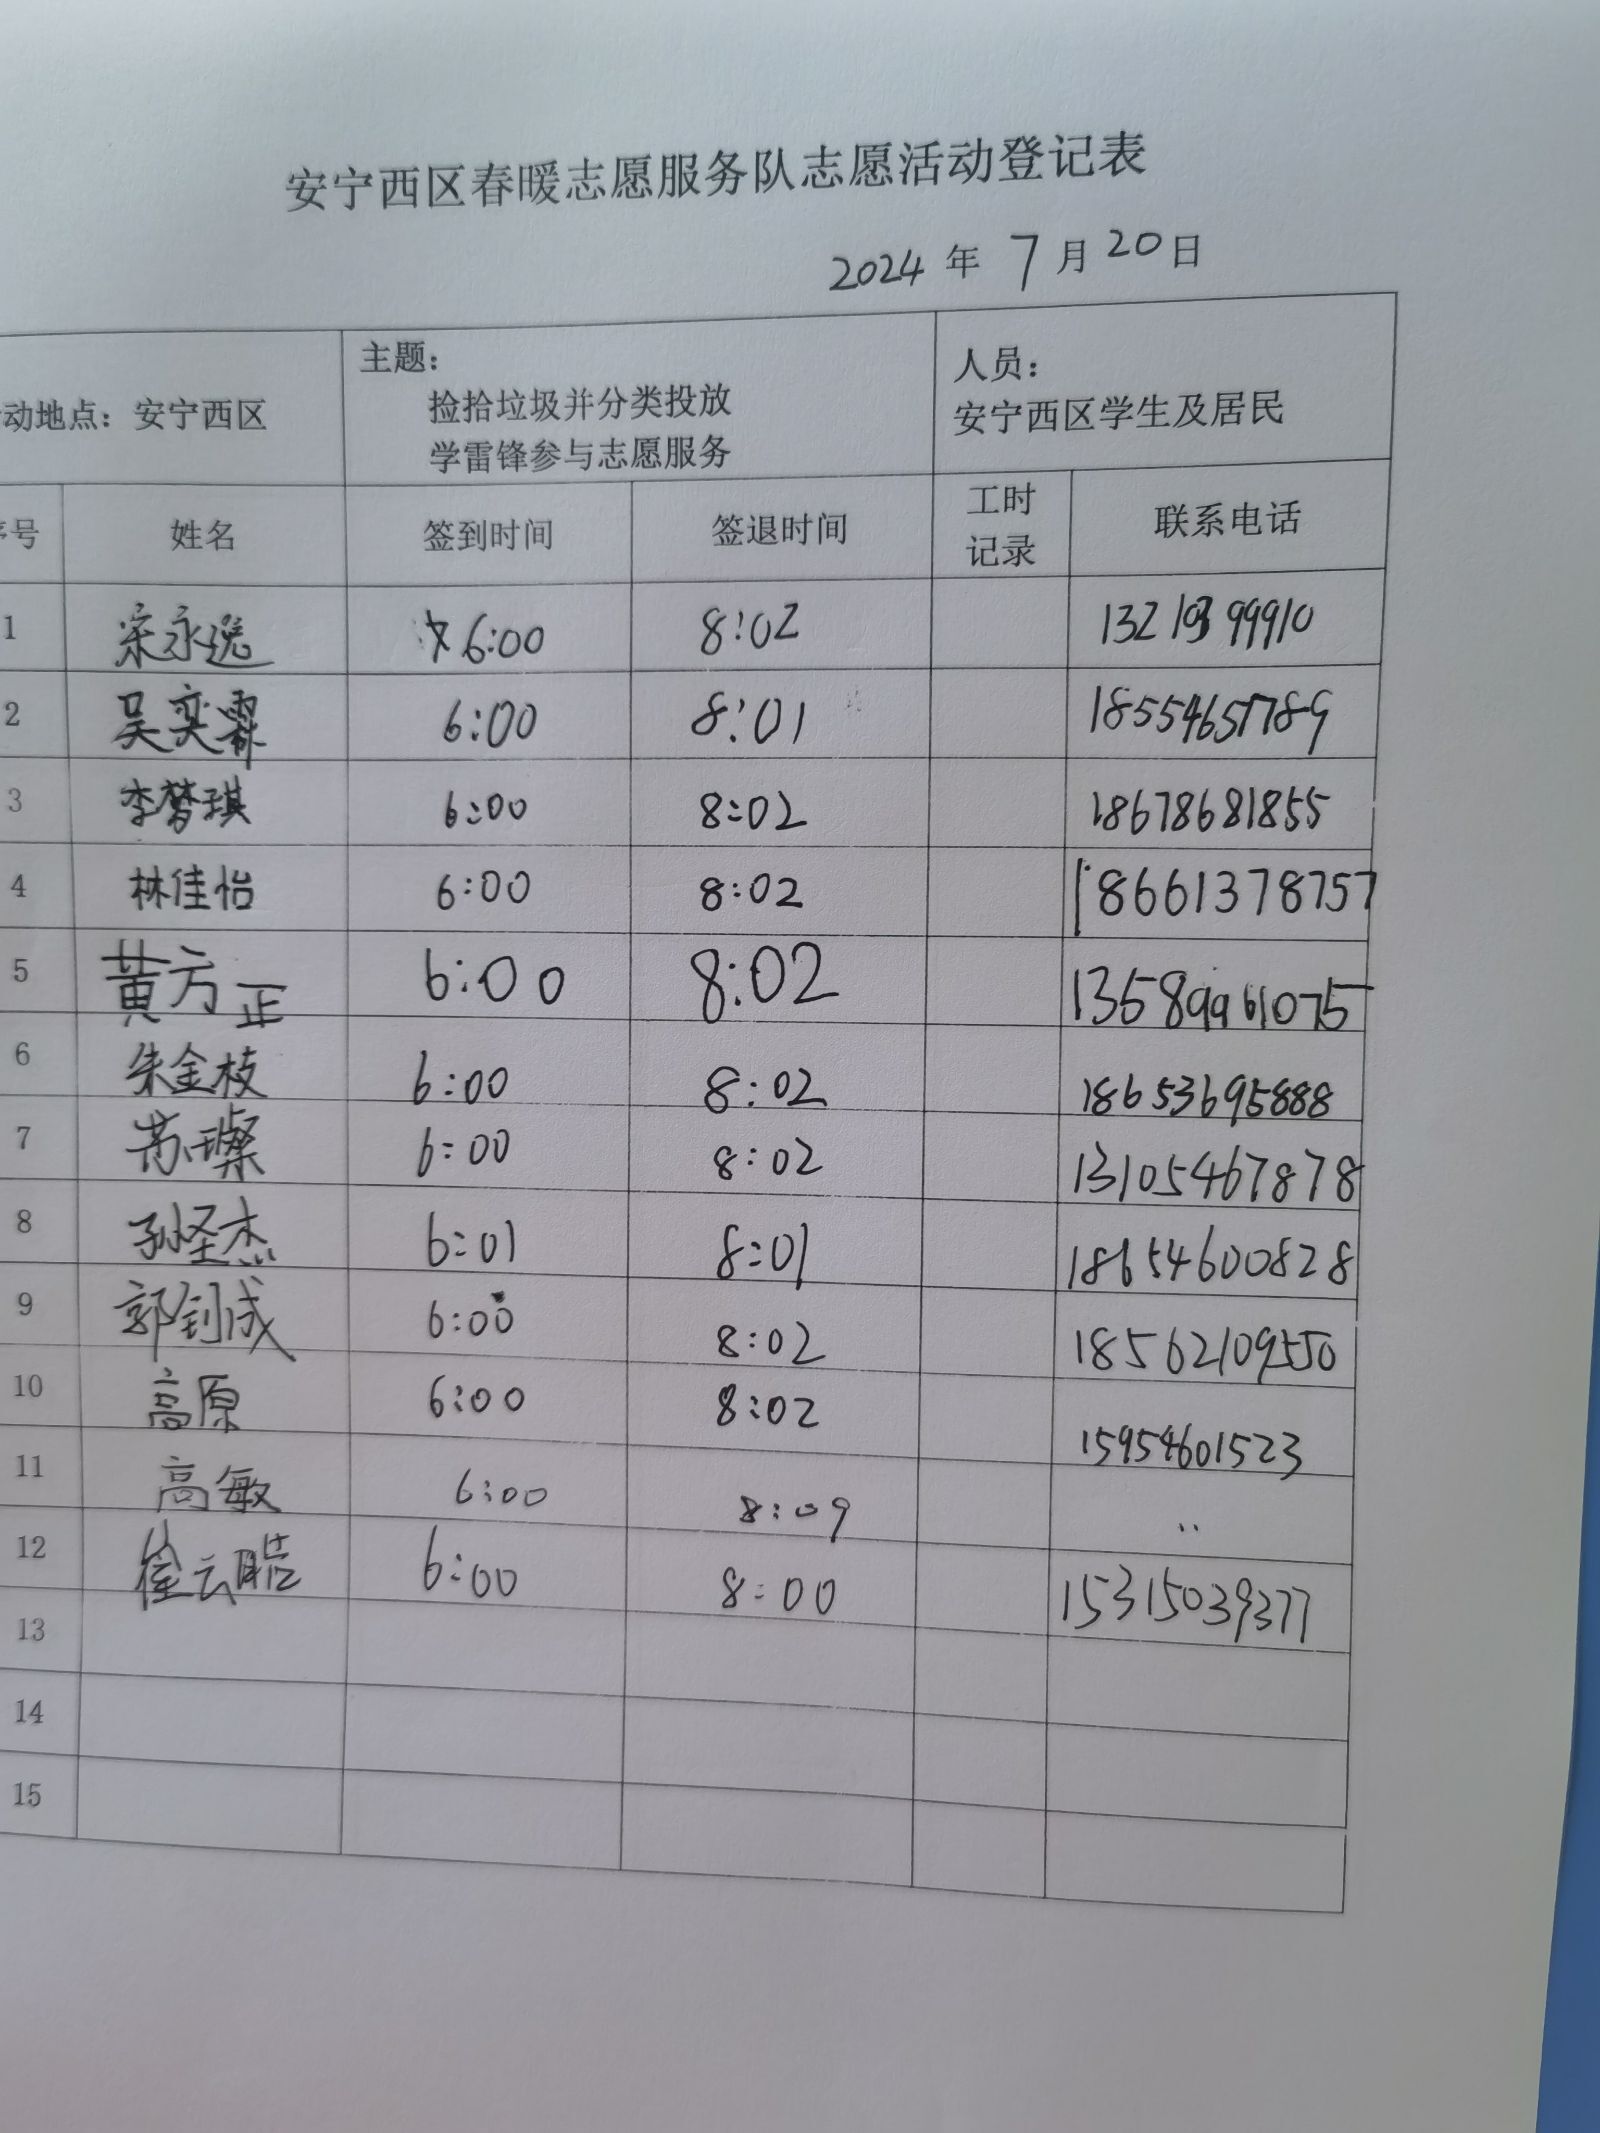 安宁西区春暖志愿服务队志愿活动登记表
2024 年 7 月 20 日
动地点：安宁西区
主题：
捡拾垃圾并分类投放
学雷锋参与志愿服务
人员：
安宁西区学生及居民
序号 姓名 签到时间 签退时间 工时记录 联系电话
1 宋永逸 6:00 8:02
2 吴奕霖 6:00 8:01 18554651789
3 李梦琪 6:00 8:02 18678681855
4 林佳怡 6:00 8:02 18661378757
5 黄方正 6:00 8:02 13589961075
6 朱金枝 6:00 8:02 18653695888
7 苏璨 6:00 8:02 13105467878
8 孙圣杰 6:01 8:01 18654600828
9 郭钊成 6:00 8:02 18562109550
10 高原 6:00 8:02 15954601523
11 高敏 6:00 8:09 ..
12 徐云皓 6:00 8:00 15315039377
13
14
15